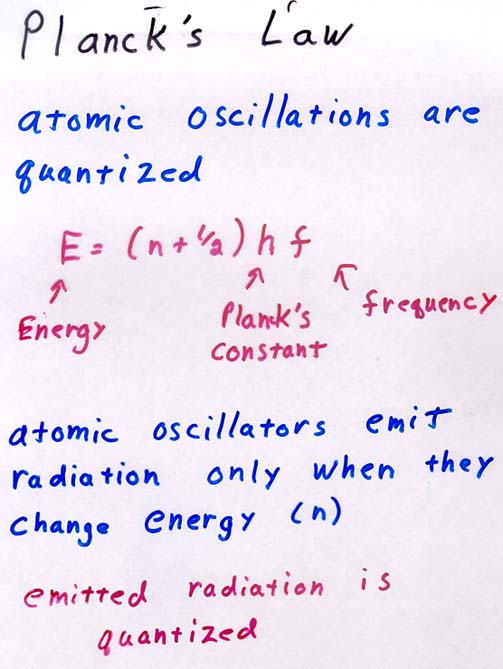 Planck's Law
atomic oscillations are
quantized
E = (n + 1/2) h f
Energy
Planck's
constant
frequency
atomic oscillators emit
radiation only when they
change energy (n)
emitted radiation is
quantized